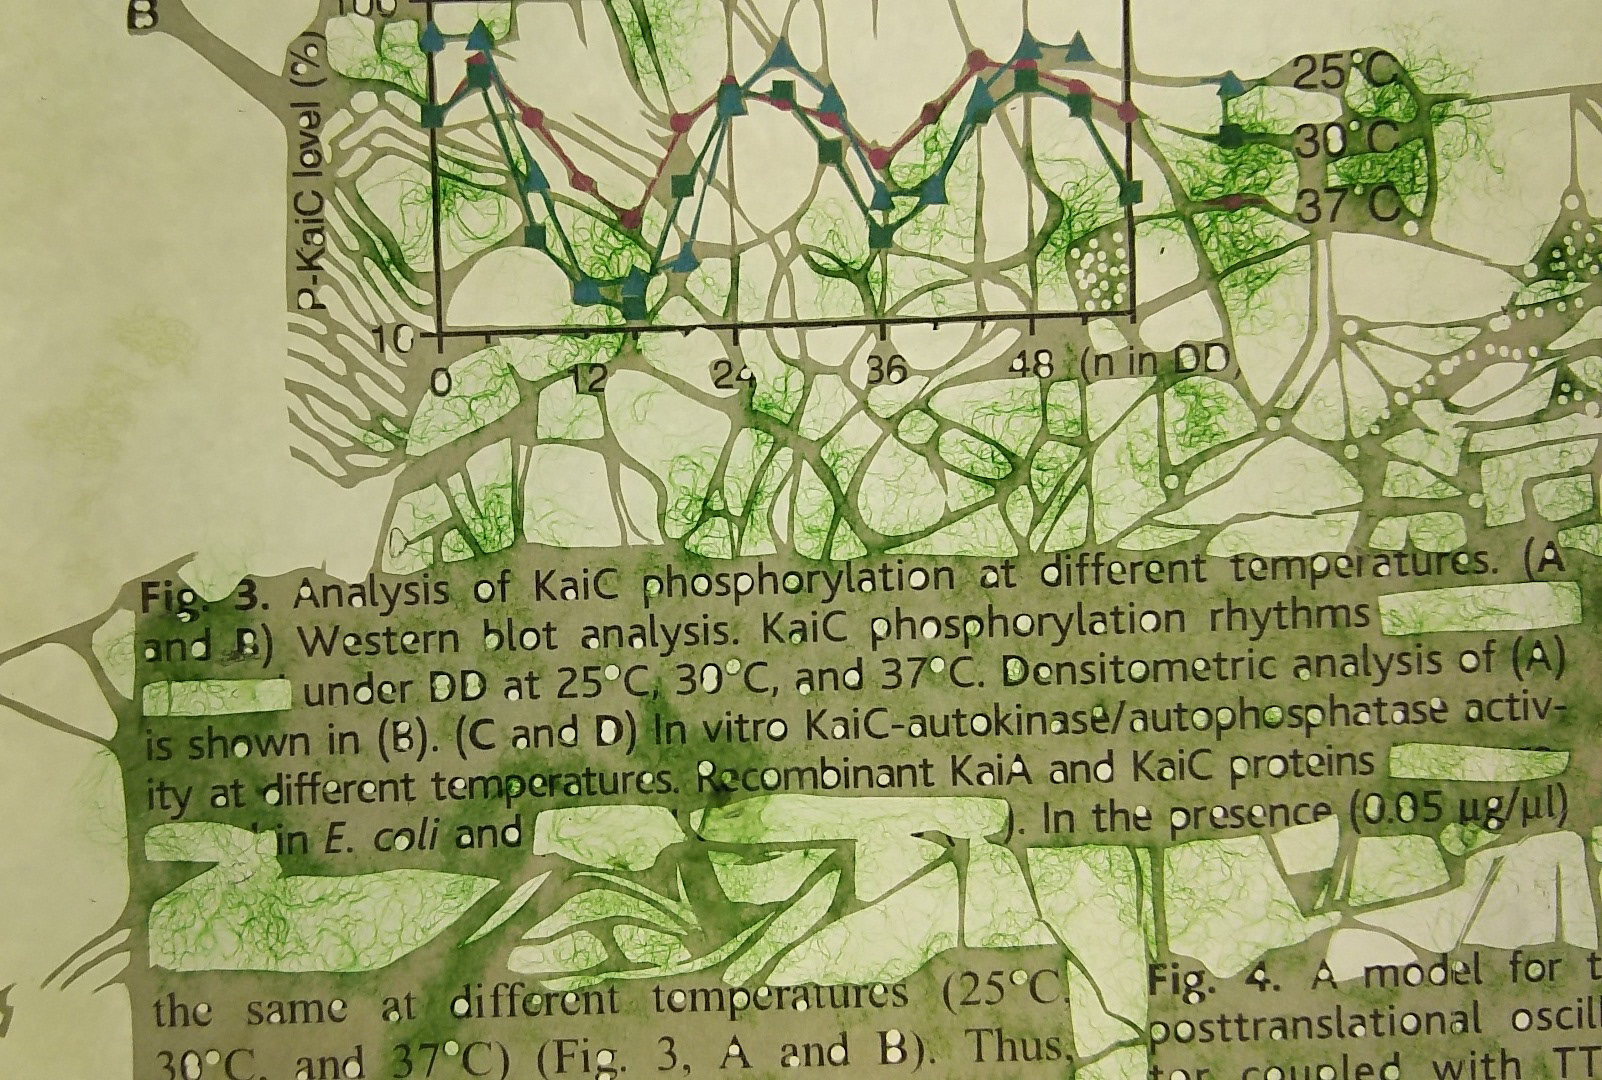 B
100
P-KaiC level (%)
10
0 12 24 36 48 (n in DD)
25°C
30°C
37°C
Fig. 3. Analysis of KaiC phosphorylation at different temperatures. (A
and B) Western blot analysis. KaiC phosphorylation rhythms
under DD at 25°C, 30°C, and 37°C. Densitometric analysis of (A)
is shown in (B). (C and D) In vitro KaiC-autokinase/autophosphatase activ-
ity at different temperatures. Recombinant KaiA and KaiC proteins
in E. coli and ). In the presence (0.05 µg/µl)
the same at different temperatures (25°C,
30°C, and 37°C) (Fig. 3, A and B). Thus,
Fig. 4. A model for t
posttranslational oscill
tor coupled with TT